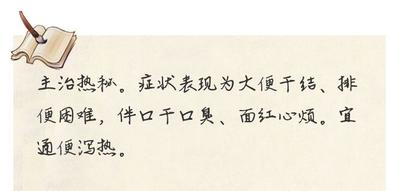 主治热秘。症状表现为大便干结、排
便困难，伴口干口臭、面红心烦。宜
通便泻热。